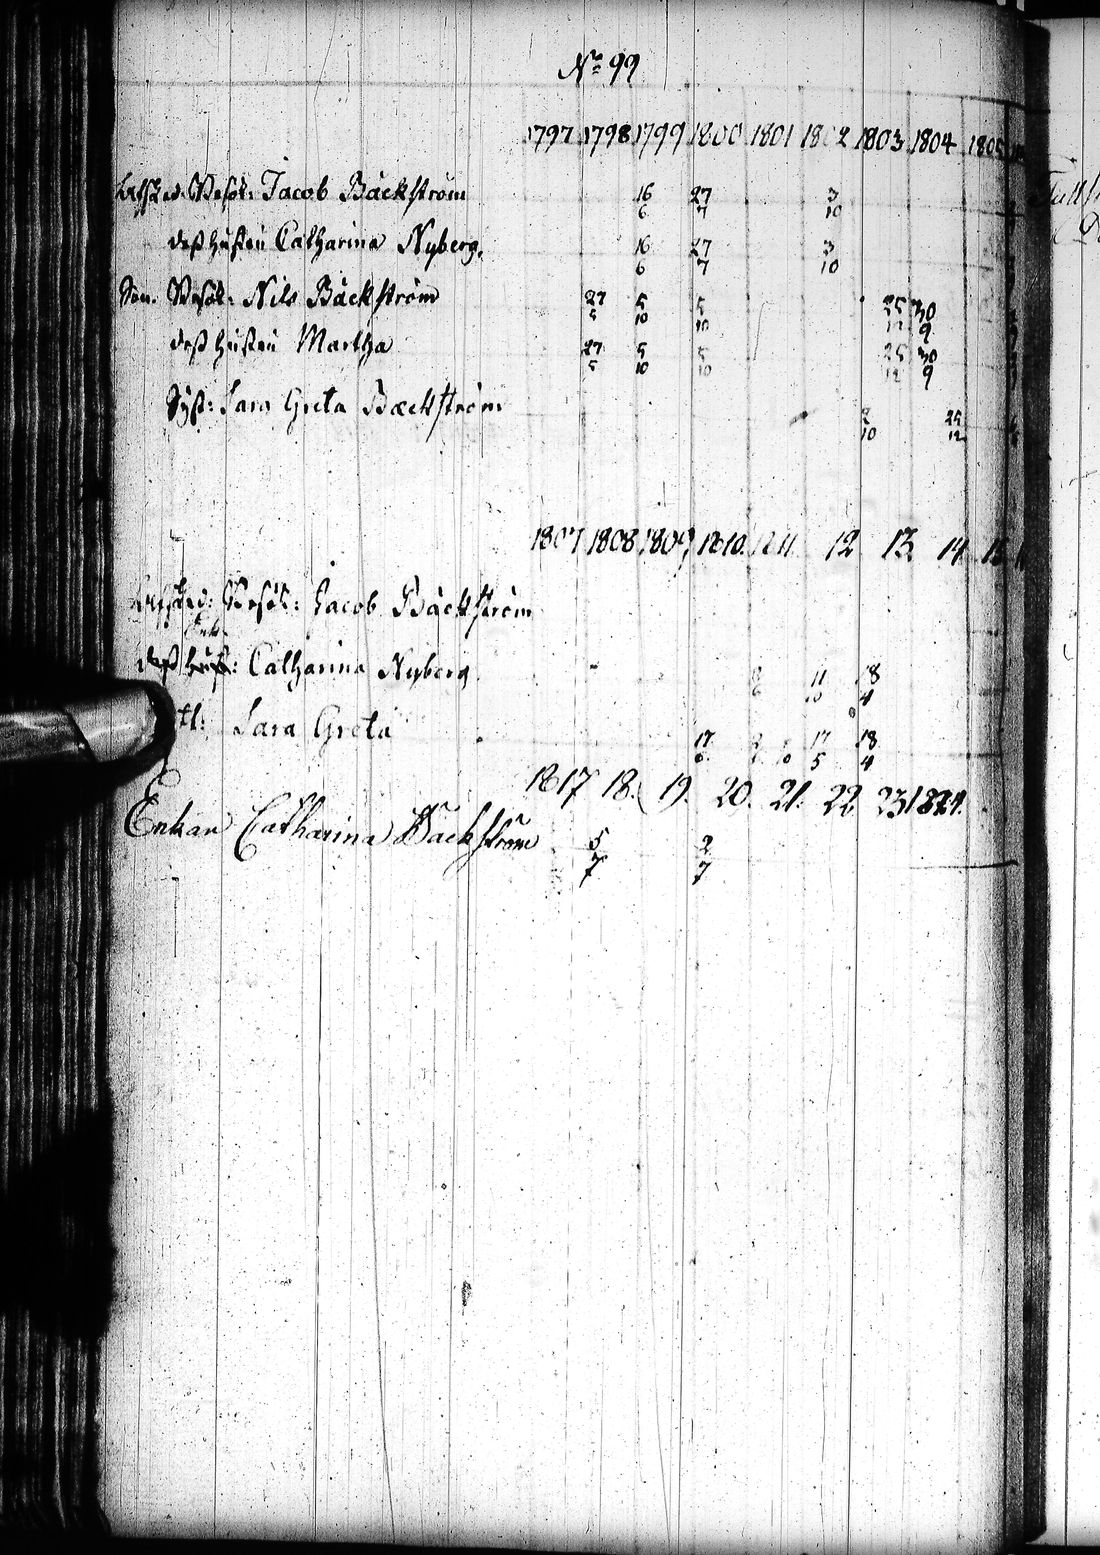 No 99
1797 1798 1799 1800 1801 1802 1803 1804 1805
Jacob Bäckström 16/6 27/7 3/10
deß hustru Catharina Nyberg. 16/6 27/7 3/10
Son. Nils Bäckström 27/5 5/10 5/10 25/12 30/9
deß hustru Martha 27/5 5/10 5/10 25/12 30/9
Syst: Sara Greta Bæckström 2/10 25/12
1807 1808 1809 1810. 1811. 12 13. 14. 15
Jacob Bäckström
Enk.
deß hust: Catharina Nyberg. 11/10 18/4
Sara Greta 17/6 17/5 18/4
1817 18. 19. 20. 21. 22. 23 1824.
Enkan Catharina Bäckström 5/7 2/7